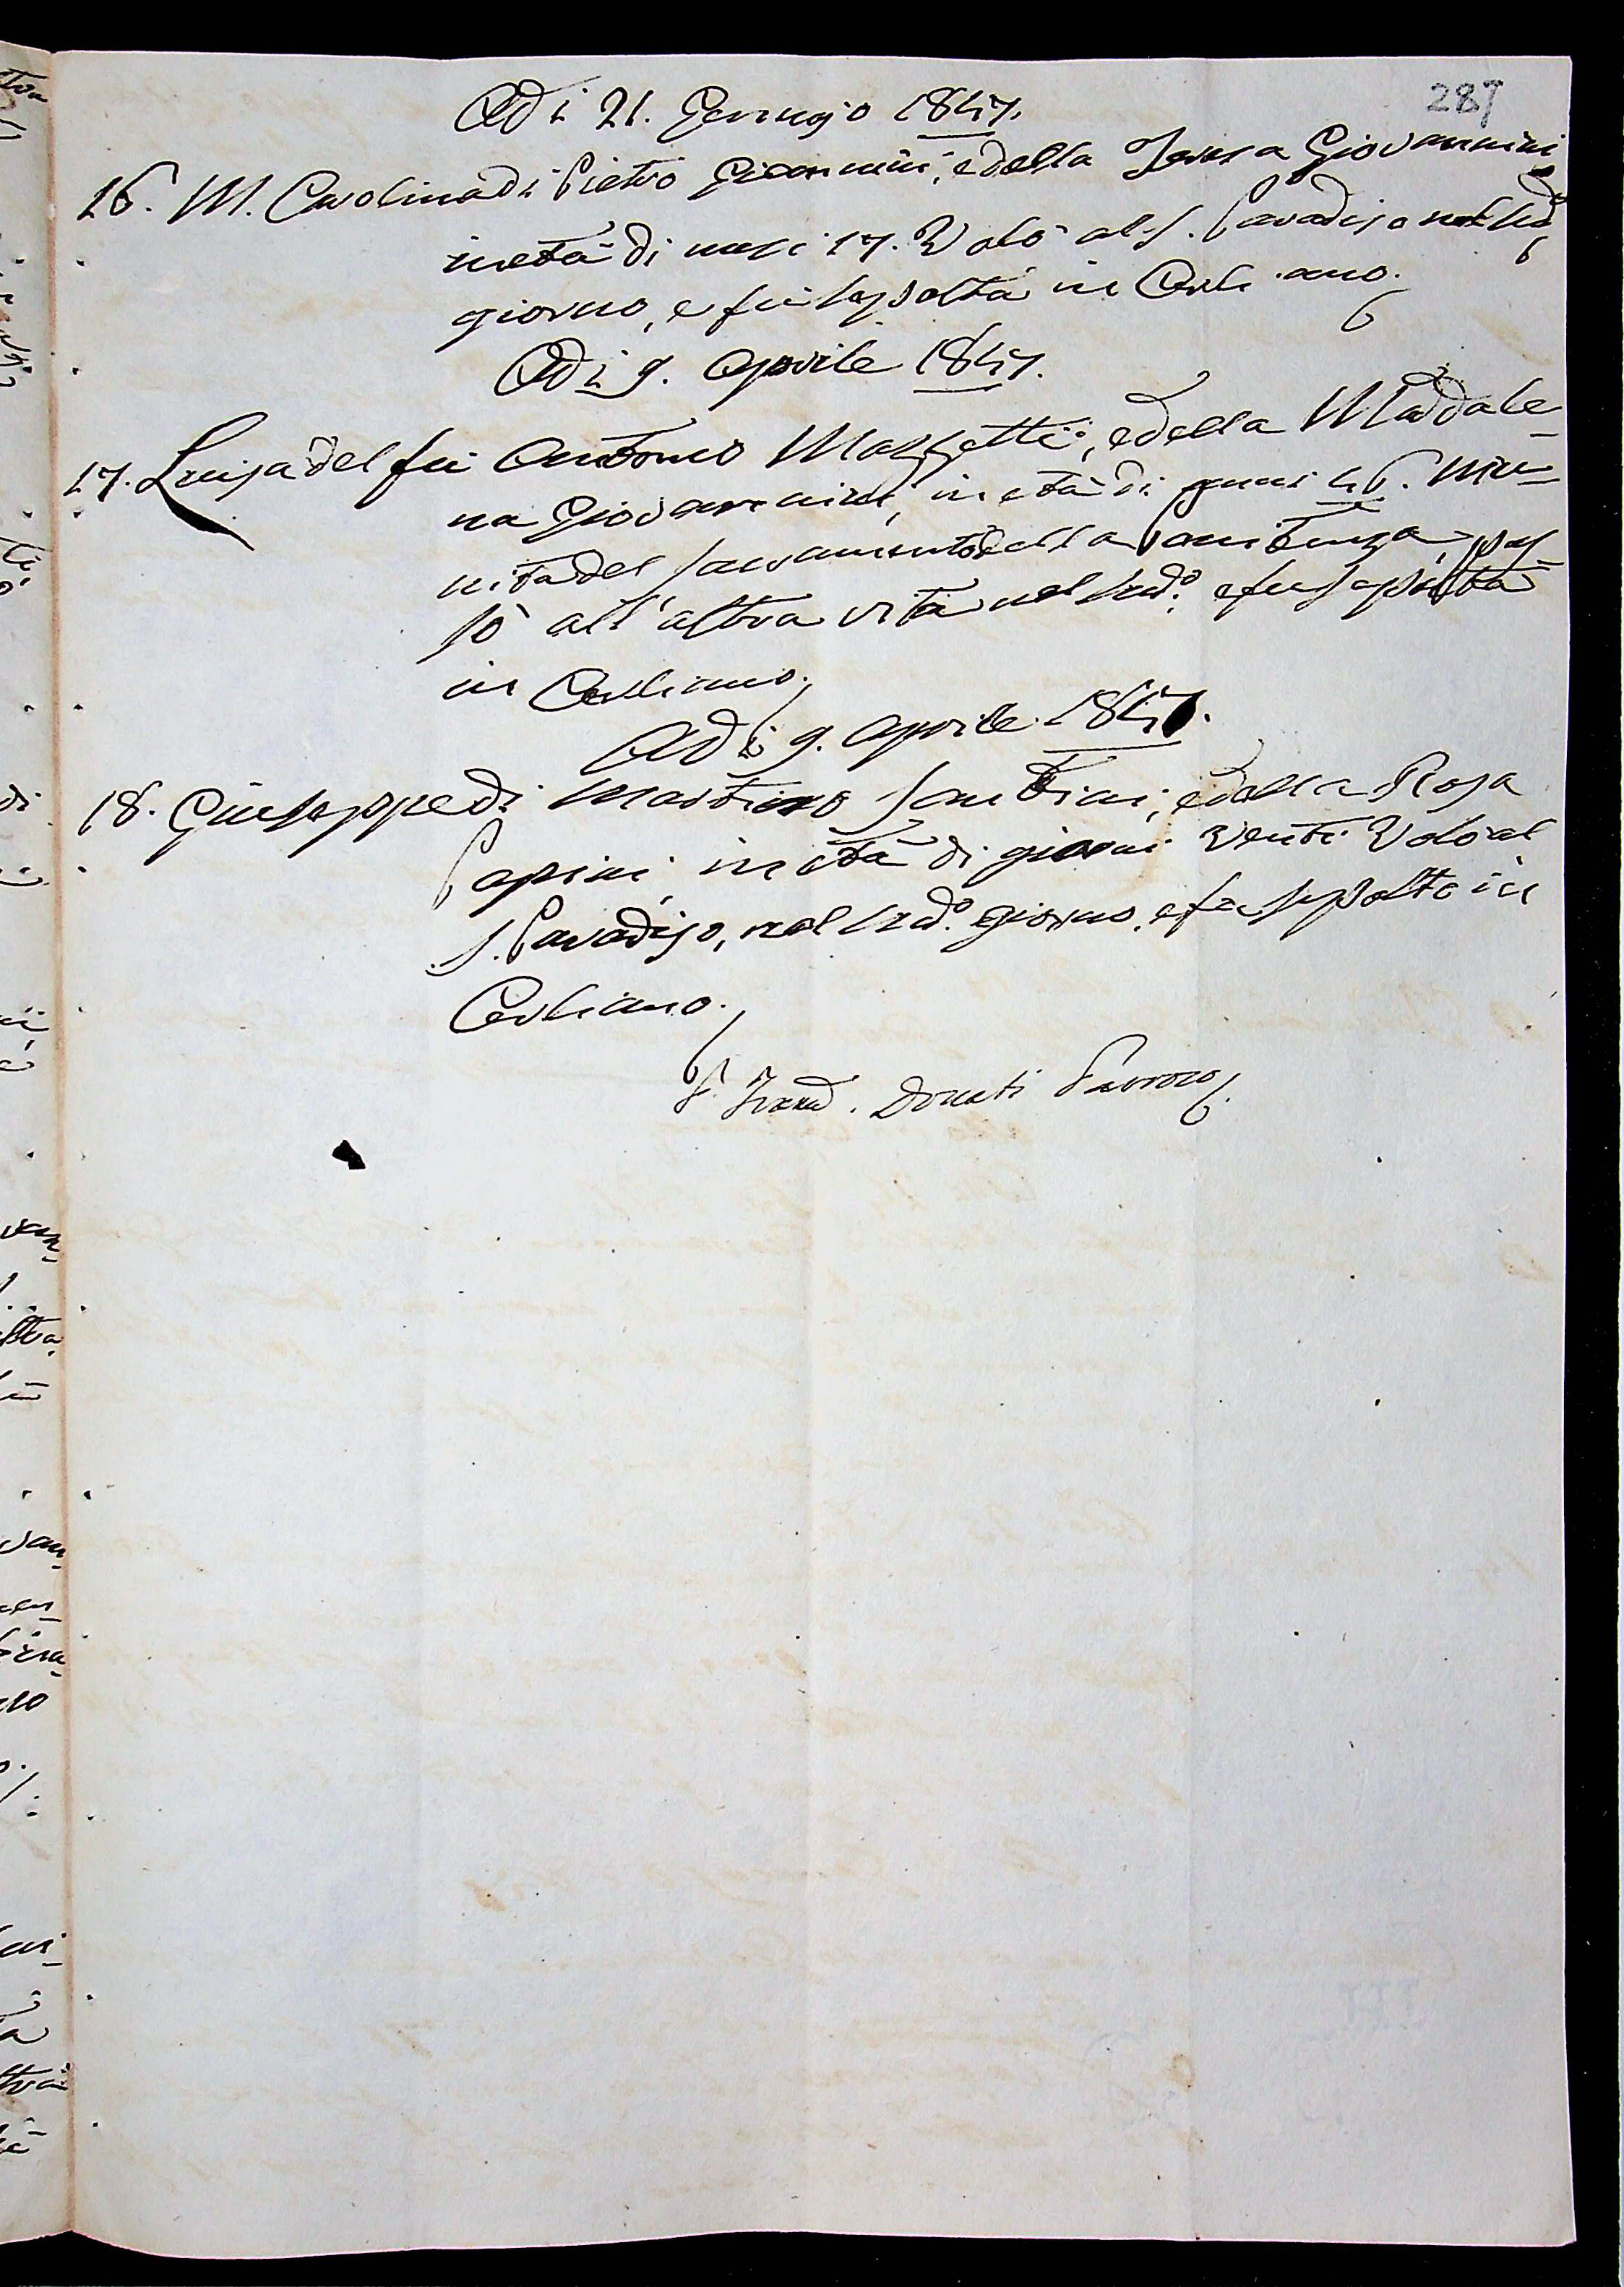 287
Adi 21. Gennajo 1847.
16. M. Carolina di Pietro Giannini, e della Teresa Giovannini
in età di mesi 17. Volò al S. Paradiso nel sud.
giorno, e fu sepolta in Cerliano.
Adi 9. Aprile 1847.
17. Luisa del fu Antonio Mazzetti, e della Maddale-
na Giovannini, in età di anni 46. Mu-
nita del Sacramento della Penitenza, pas-
sò all'altra vita nel sud.º e fu sepolta
in Cerliano.
Adi 9. Aprile 1847.
18. Giuseppe di Martino Santini, e della Rosa
Papini, in età di giorni venti Volò al
S. Paradiso, nel sud.º giorno, e fu sepolto in
Cerliano.
Donati Parroco.